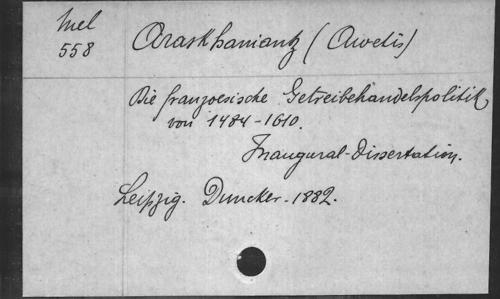 Mel
558
Araskhaniantz (Awetis)
Die franzoesische Getreibehandelspolitik
von 1484-1610.
Inaugural-Dissertation.
Leipzig. Duncker. 1882.